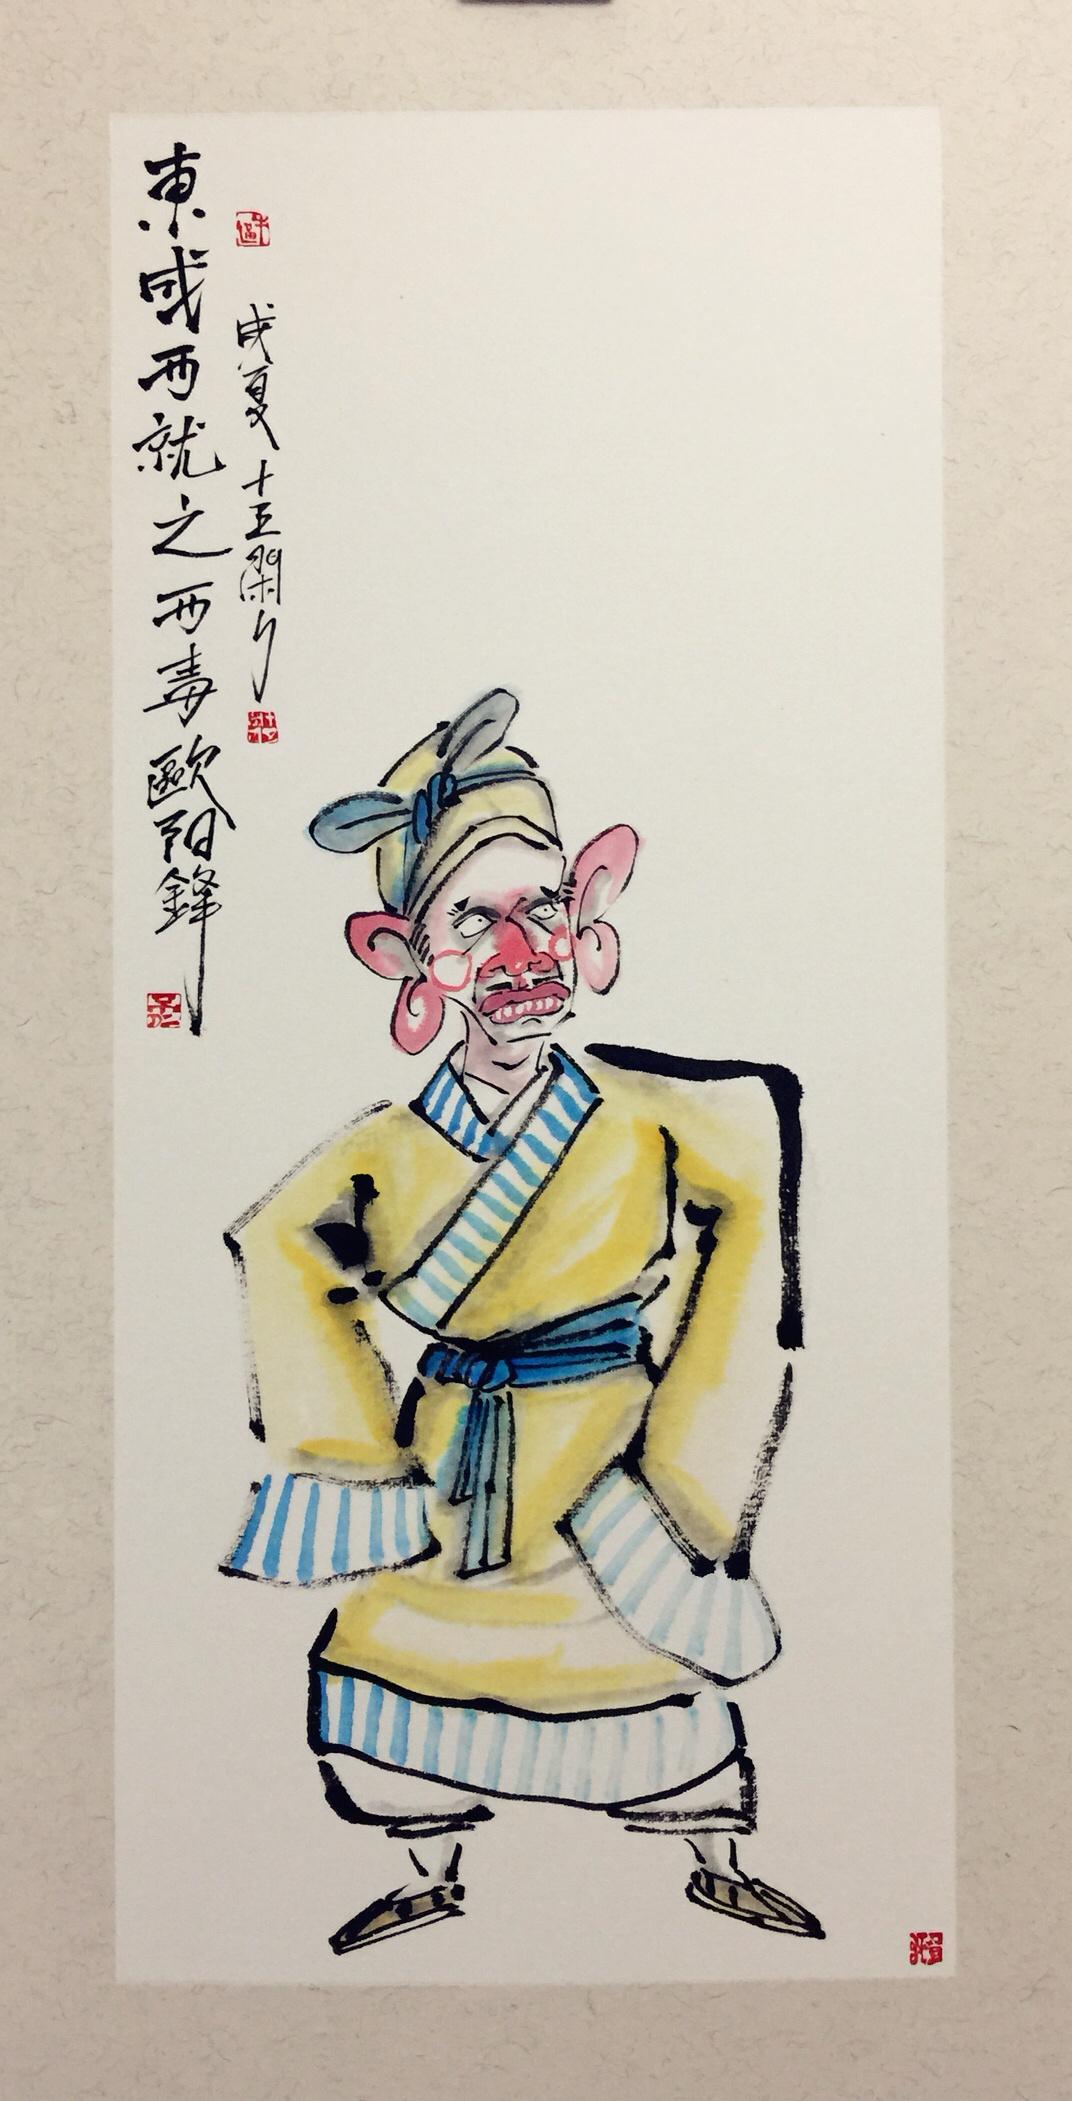 東成西就之西毒歐陽鋒
戊夏十五閑夕